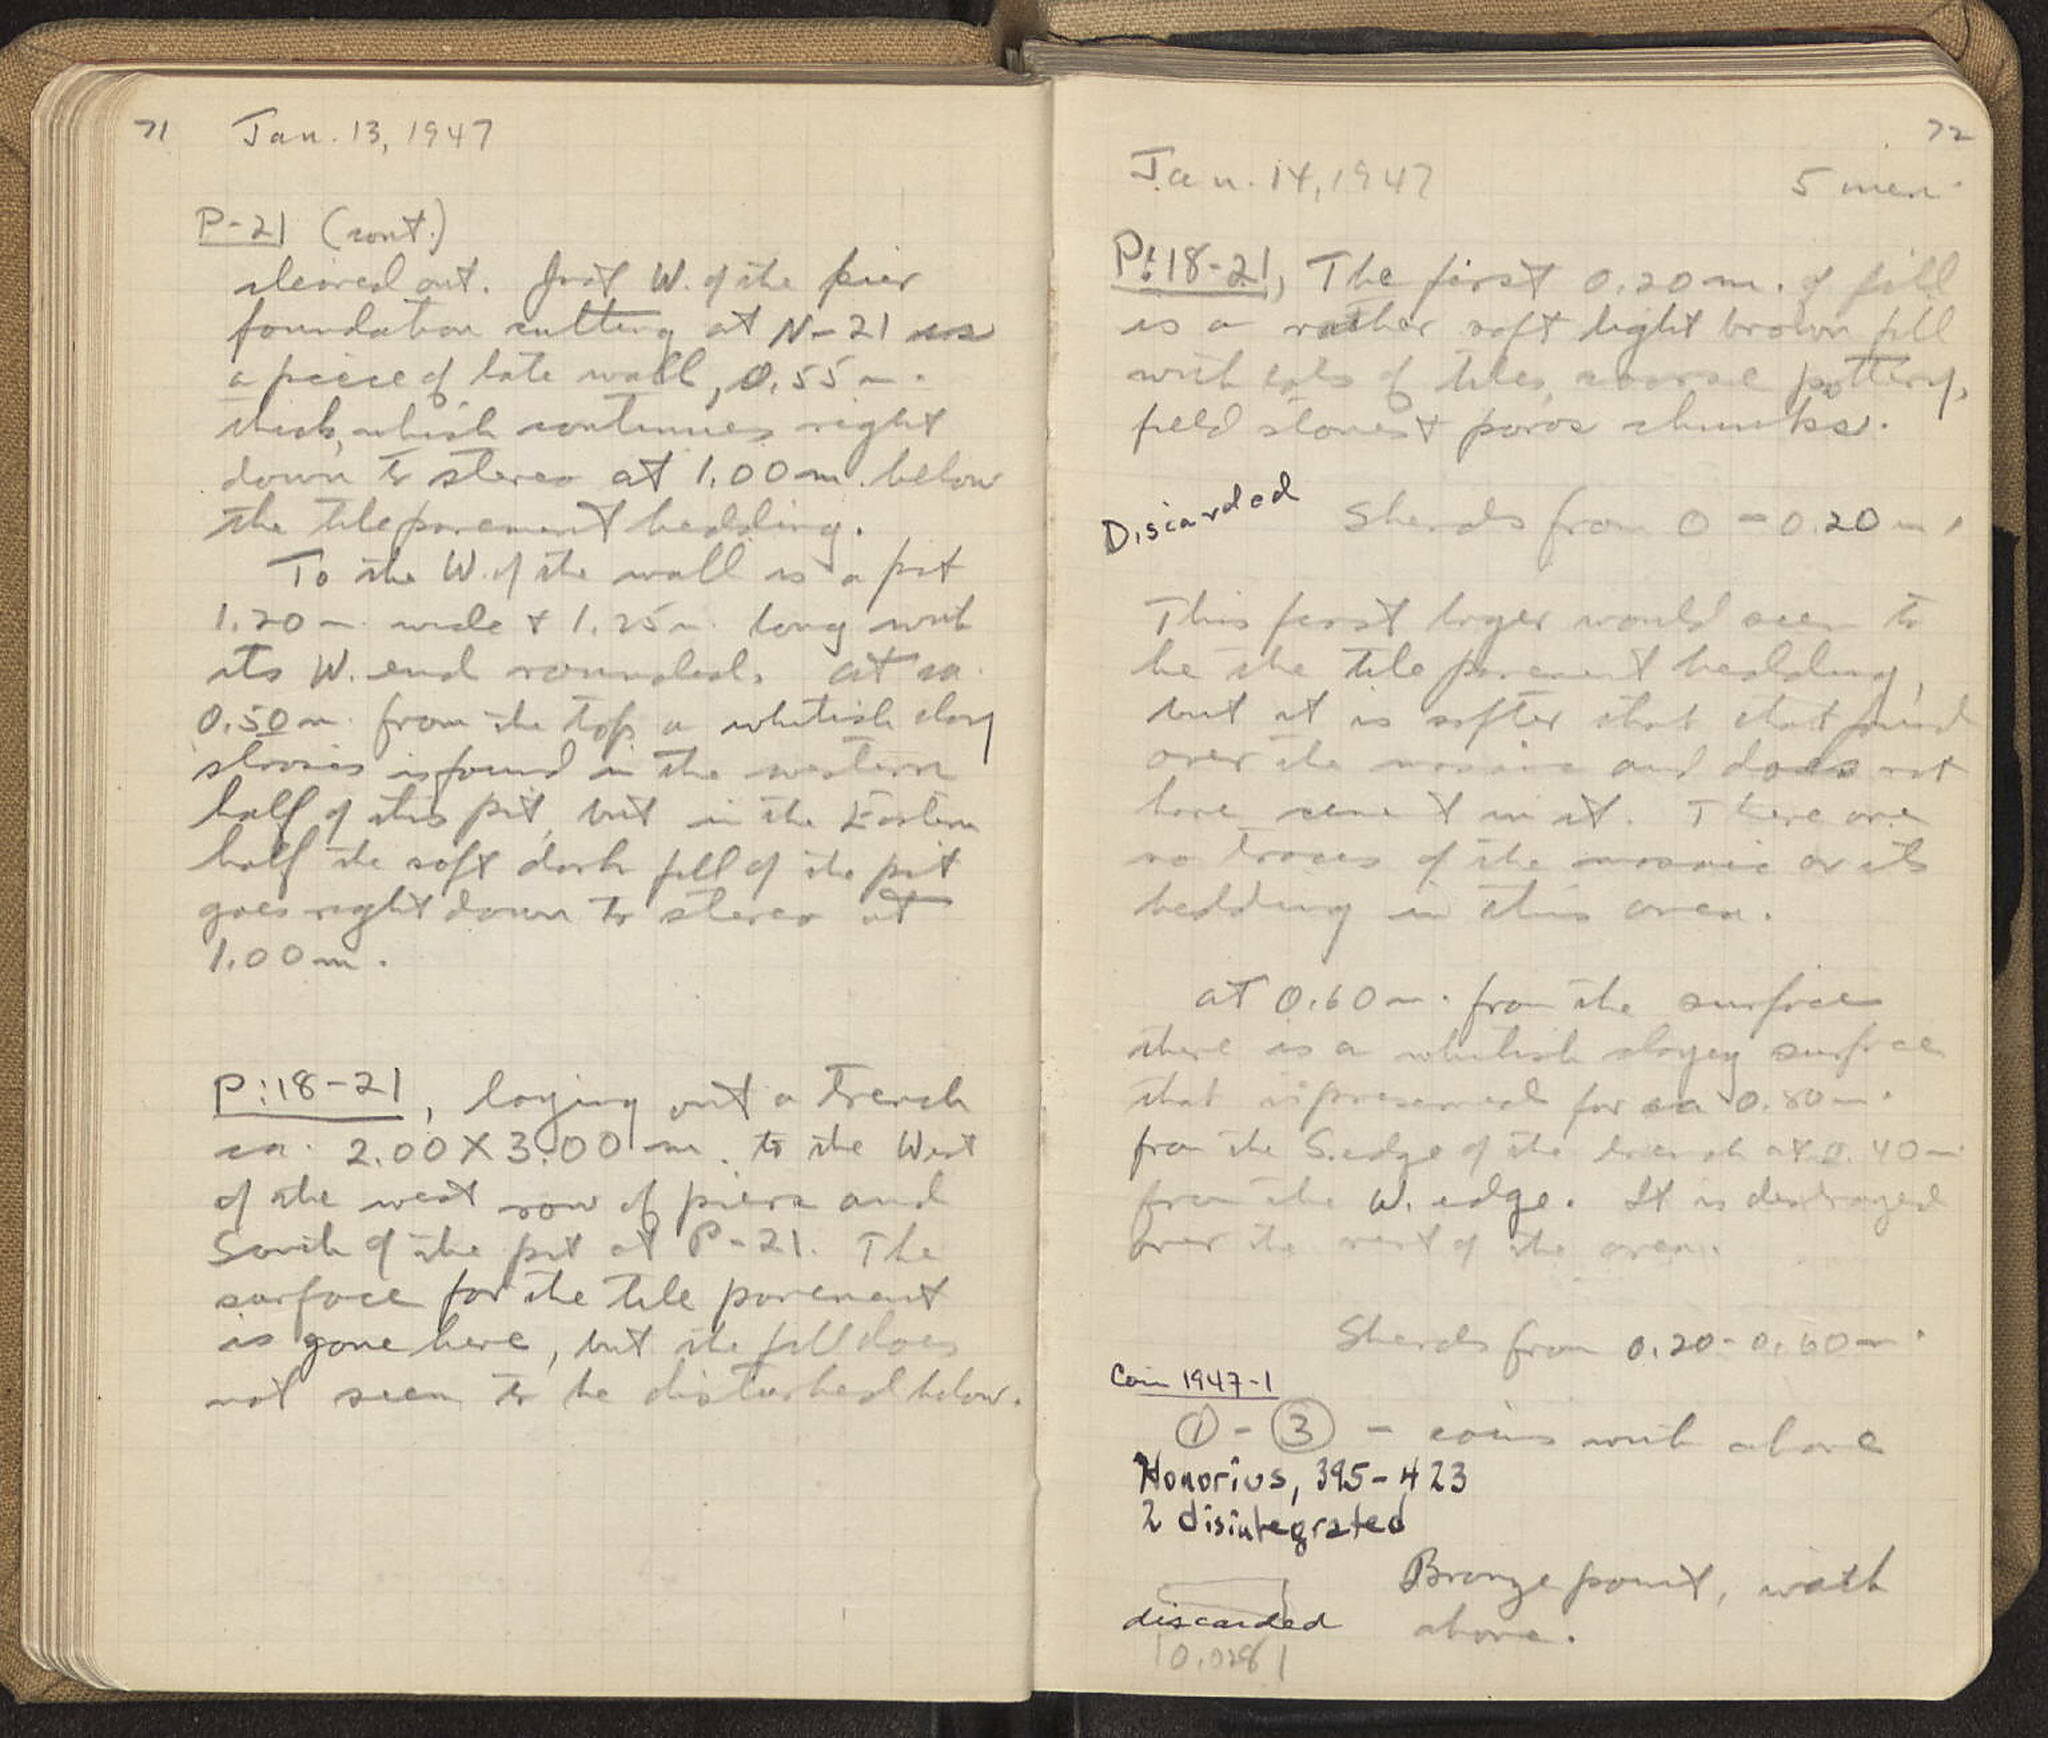 71 Jan. 13, 1947
P-21 (cont.)
cleared out. Just W. of the pier
foundation cutting at N-21 is
a piece of late wall, 0.55 m.
thick, which continues right
down to stereo at 1.00 m. below
the tile pavement bedding.
To the W. of the wall is a pit
1.20 m. wide + 1.25 m. long with
its W. end rounded. At ca.
0.50 m. from the top a whitish clay
is found in the western
half of this pit, but in the Eastern
half the soft dark fill of the pit
goes right down to stereo at
1.00 m.
P:18-21, laying out a trench
ca. 2.00 X 3.00 m. to the West
of the west row of piers and
South of the pit at P-21. The
surface for the tile pavement
is gone here, but the fill does
not seem to be disturbed below.
72
Jan. 14, 1947 5 men
P:18-21, The first 0.20 m. of fill
is a rather soft light brown fill
with lots of tiles, coarse pottery,
field stones + poros chunks.
Discarded Sherds from 0 - 0.20 m.
This first layer would seem to
be the tile pavement bedding,
but it is softer that that found
over the mosaic and does not
have cement in it. There are
no traces of the mosaic or its
bedding in this area.
At 0.60 m. from the surface
there is a whitish clayey surface
that is preserved for ca 0.80 m.
from the S. edge of the trench at 0.40 m.
from the W. edge. It is destroyed
over the rest of the area.
Sherds from 0.20 - 0.60 m.
Coin 1947-1
① - ③ - coins with above
Honorius, 395-423
2 disintegrated
Bronze point, with
discarded above.
0.028